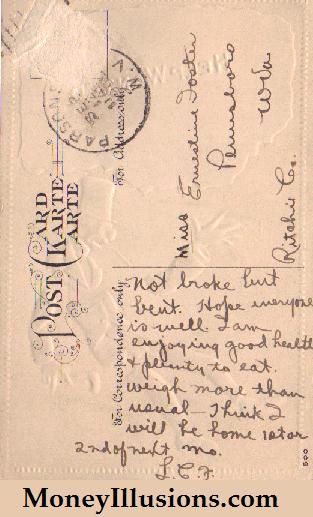 PARSONS
W. V
POST CARD
KARTE
KARTE
For Address only.
Miss Ernestine Foster
Pennsboro
W Va
Ritchie Co.
For Correspondence only
Not broke but
bent. Hope everyone
is well. I am
enjoying good health
& plenty to eat.
weigh more than
usual - Think I
will be home 1st or
2nd of next mo.
L.C.F.
500
MoneyIllusions.com